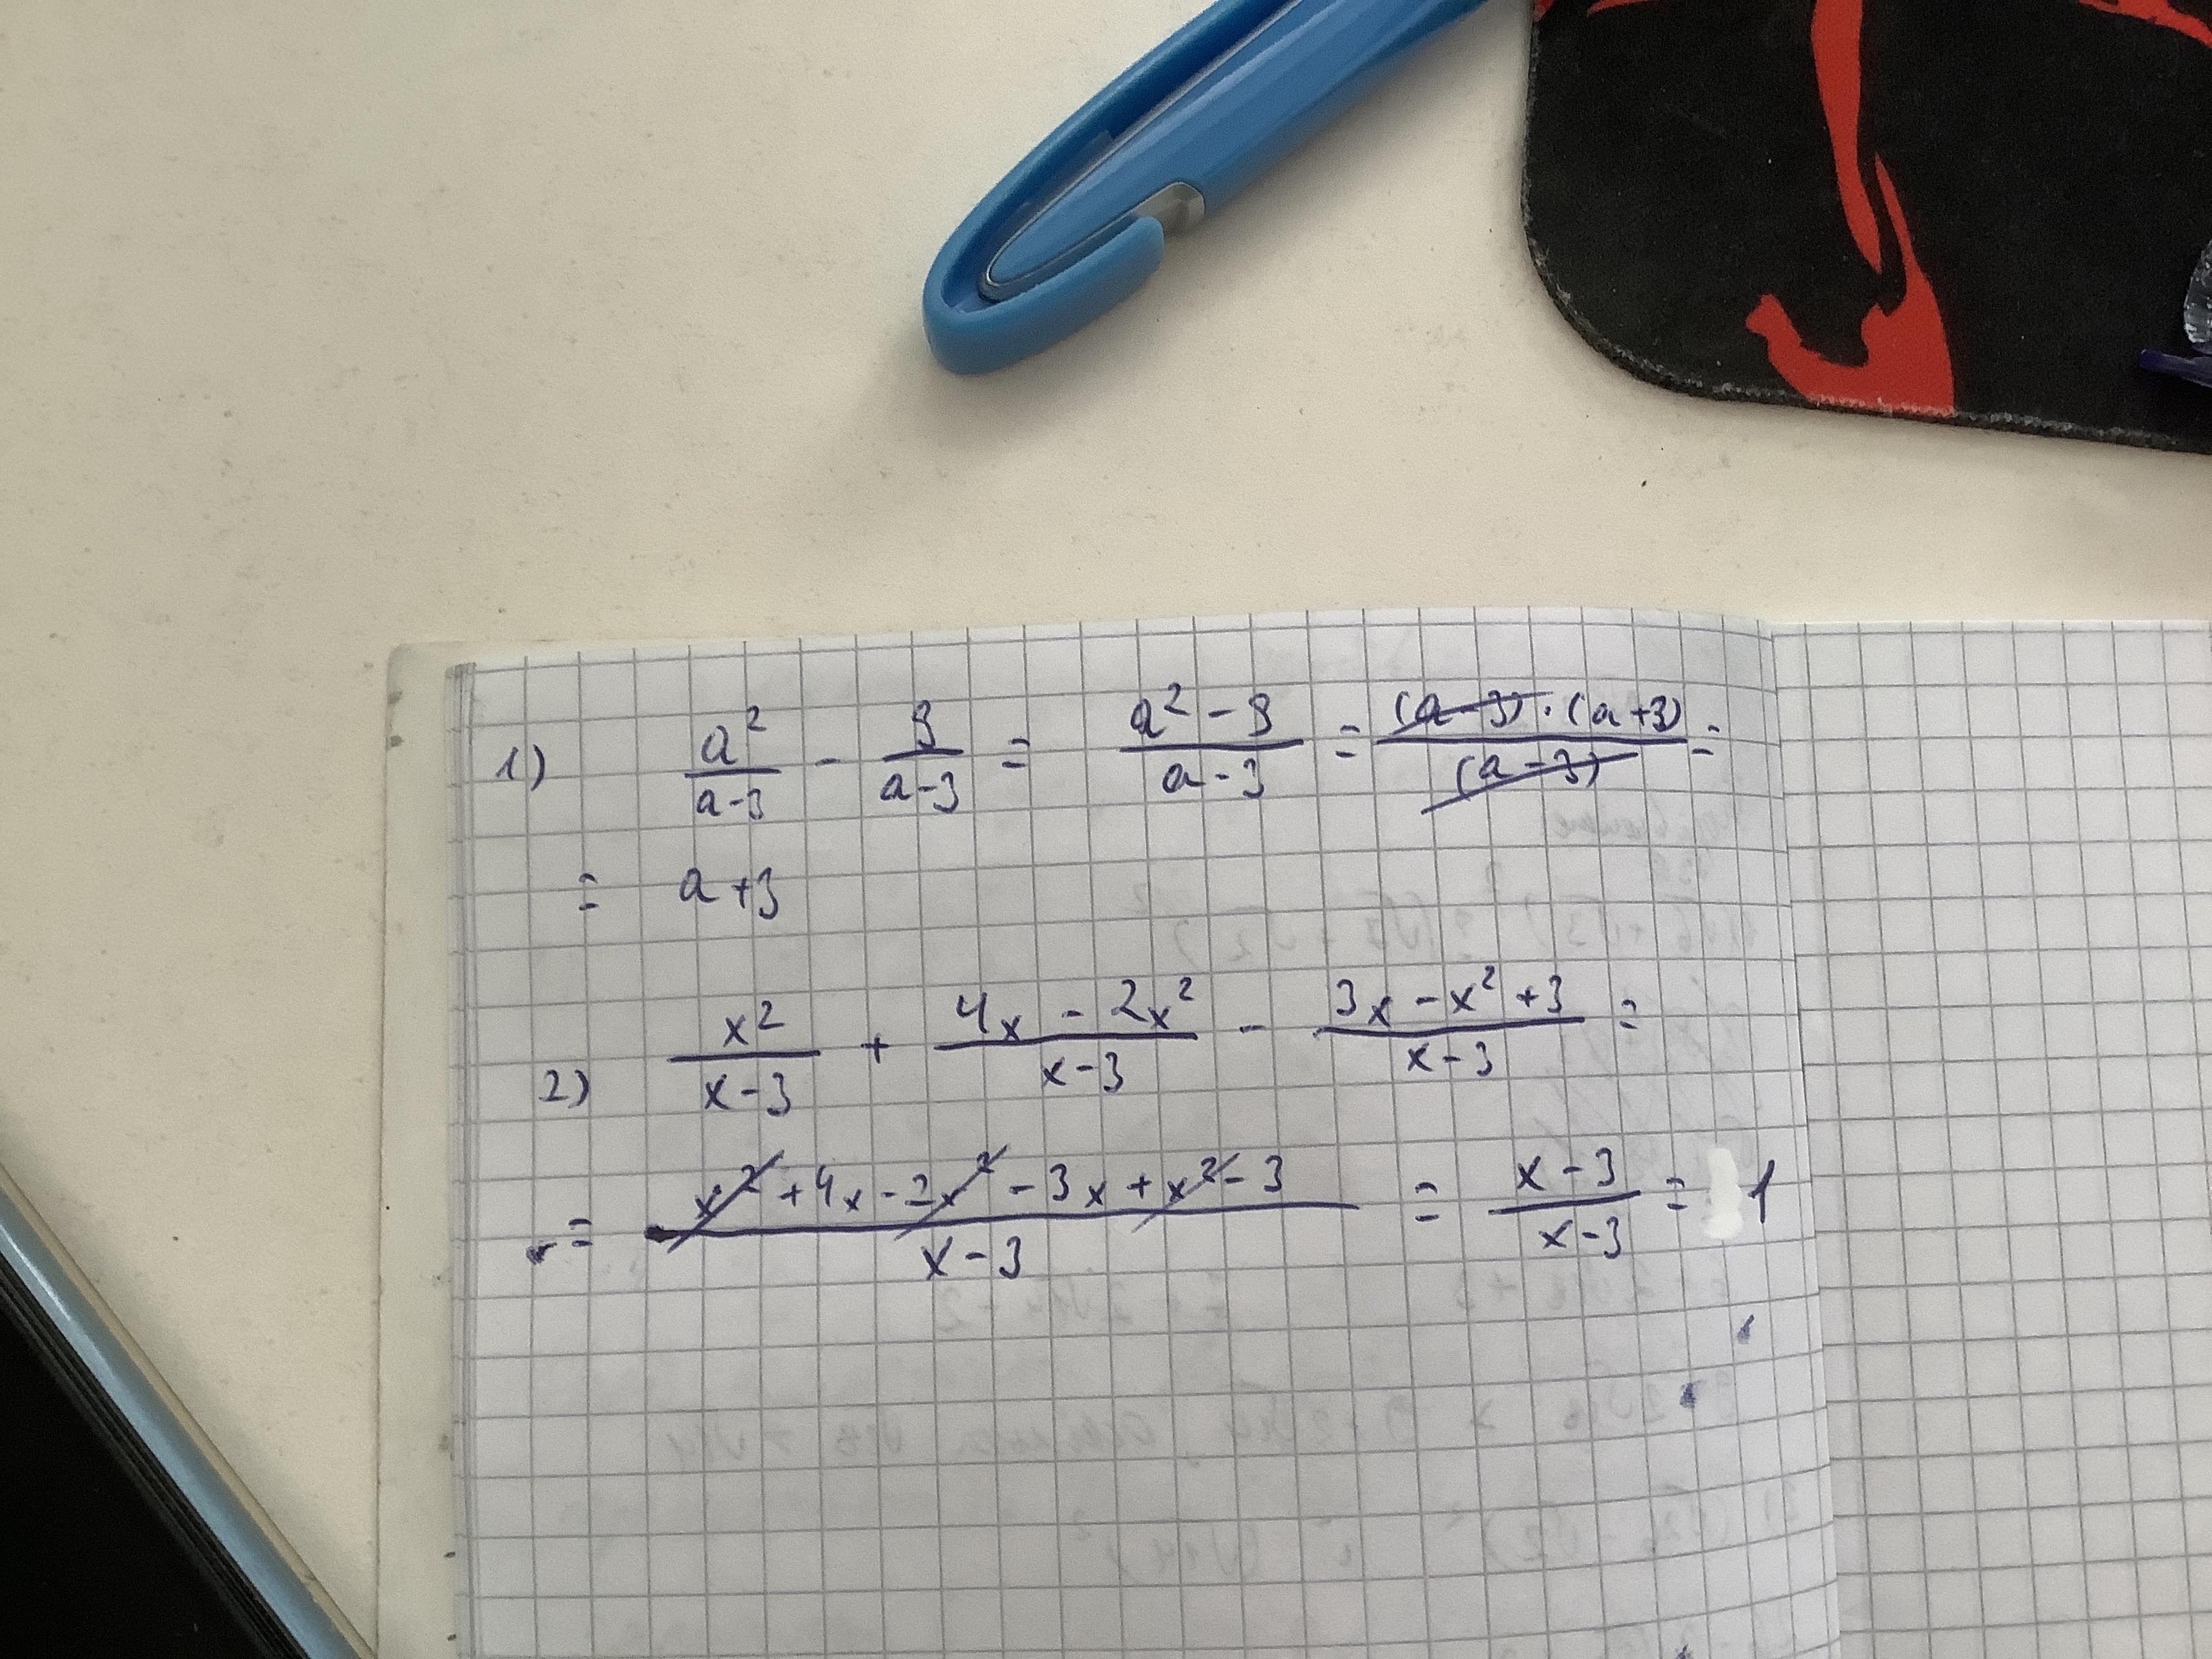 1) a²/(a-3) - 9/(a-3) = (a² - 9)/(a-3) = ((a-3)·(a+3))/((a-3)) =
= a+3
2) x²/(x-3) + (4x - 2x²)/(x-3) - (3x - x² + 3)/(x-3) =
= (x² + 4x - 2x² - 3x + x² - 3)/(x-3) = (x-3)/(x-3) = 1